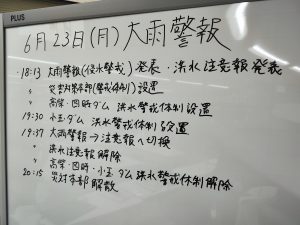 PLUS
6月23日(月)大雨警報
18:13 大雨警報(浸水警戒)発表・洪水注意報発表
〃 災害対策本部(警戒体制)設置
〃 高柴・四時ダム 洪水警戒体制設置
19:30 小玉ダム 洪水警戒体制設置
19:37 大雨警報→注意報へ切換
〃 洪水注意報解除
〃 高柴・四時・小玉ダム洪水警戒体制解除
20:15 災対本部解散